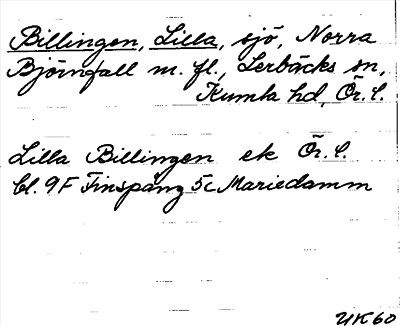 Billingen, Lilla, sjö, Norra
Björnfall m. fl., Lerbäcks sn,
Kumla hd, Ör. l.
Lilla Billingen ek Ör. l.
bl. 9F Finspång 5c Mariedamm
UK60